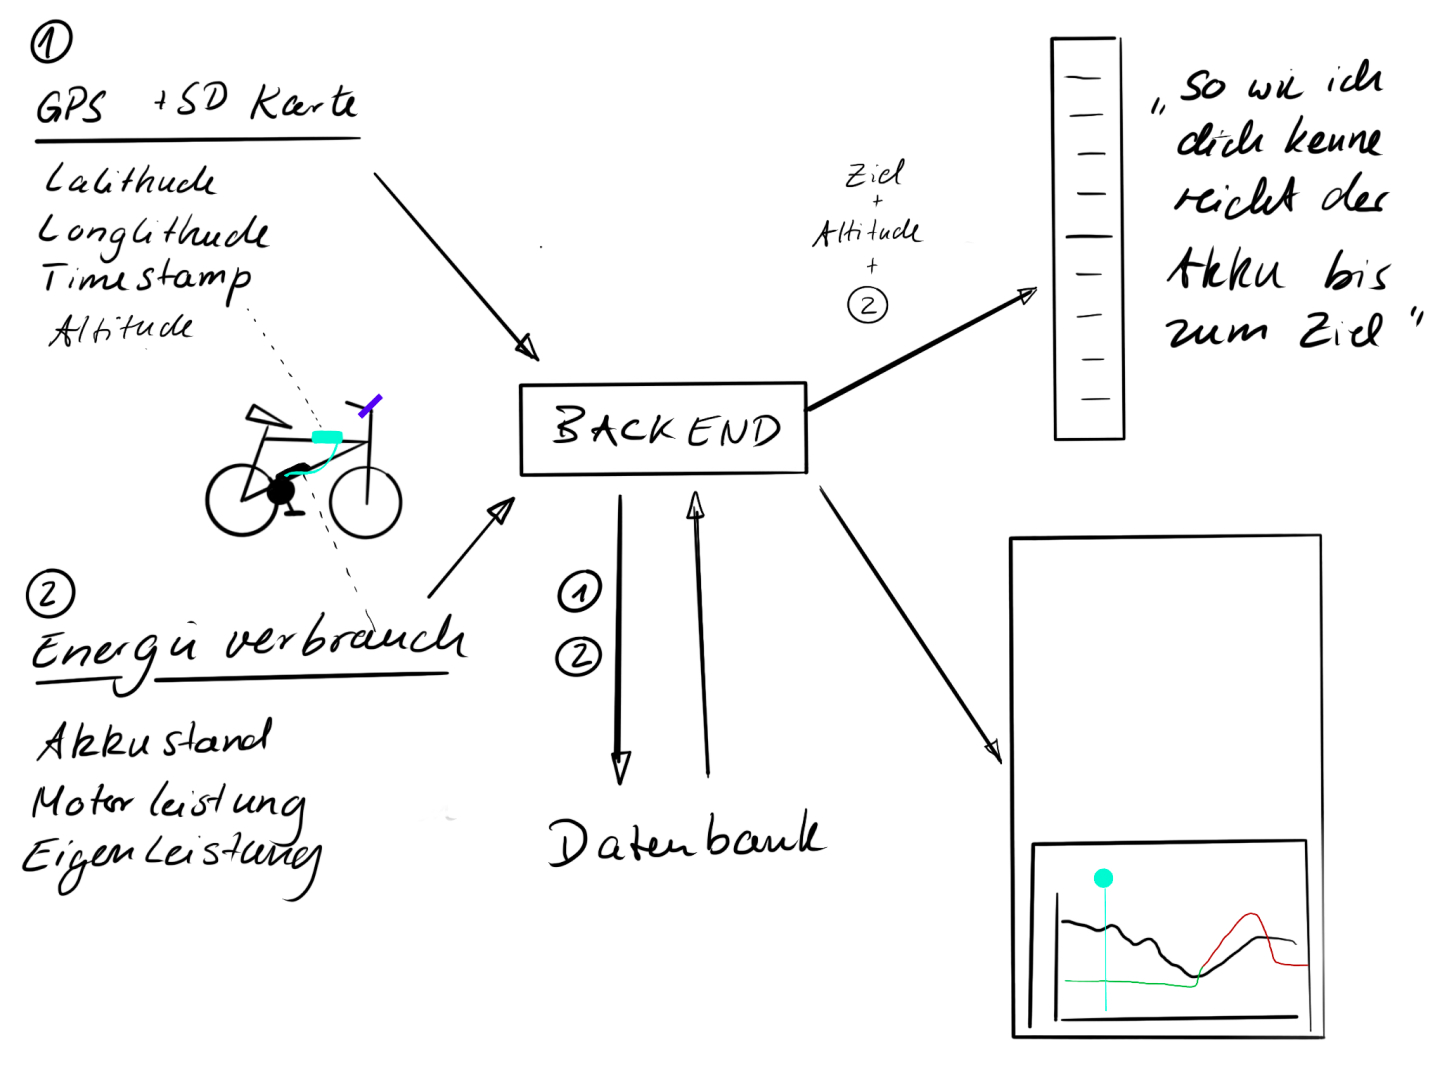 1
GPS + SD Karte
Latithude
Longlithude
Timestamp
Altitude
2
Energie verbrauch
Akkustand
Motorleistung
Eigenleistung
BACKEND
1
2
Datenbank
Ziel
+
Altitude
+
2
„So wie ich
dich kenne
reicht der
Akku bis
zum Ziel"